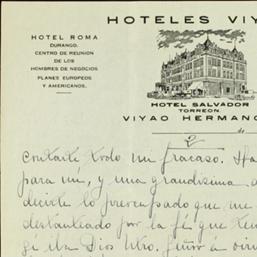 HOTELES VIY
HOTEL ROMA
DURANGO.
CENTRO DE REUNION
DE LOS
HOMBRES DE NEGOCIOS
PLANES EUROPEOS
Y AMERICANOS.
HOTEL SALVADOR
TORREON.
VIYAO HERMANO
de
2
contarte todo un fracaso. Ha
para mí, y una grandisima a
decirte lo preocupado que me
destanteado por la fé que ten
gi iba Dios Ntro. Señor á